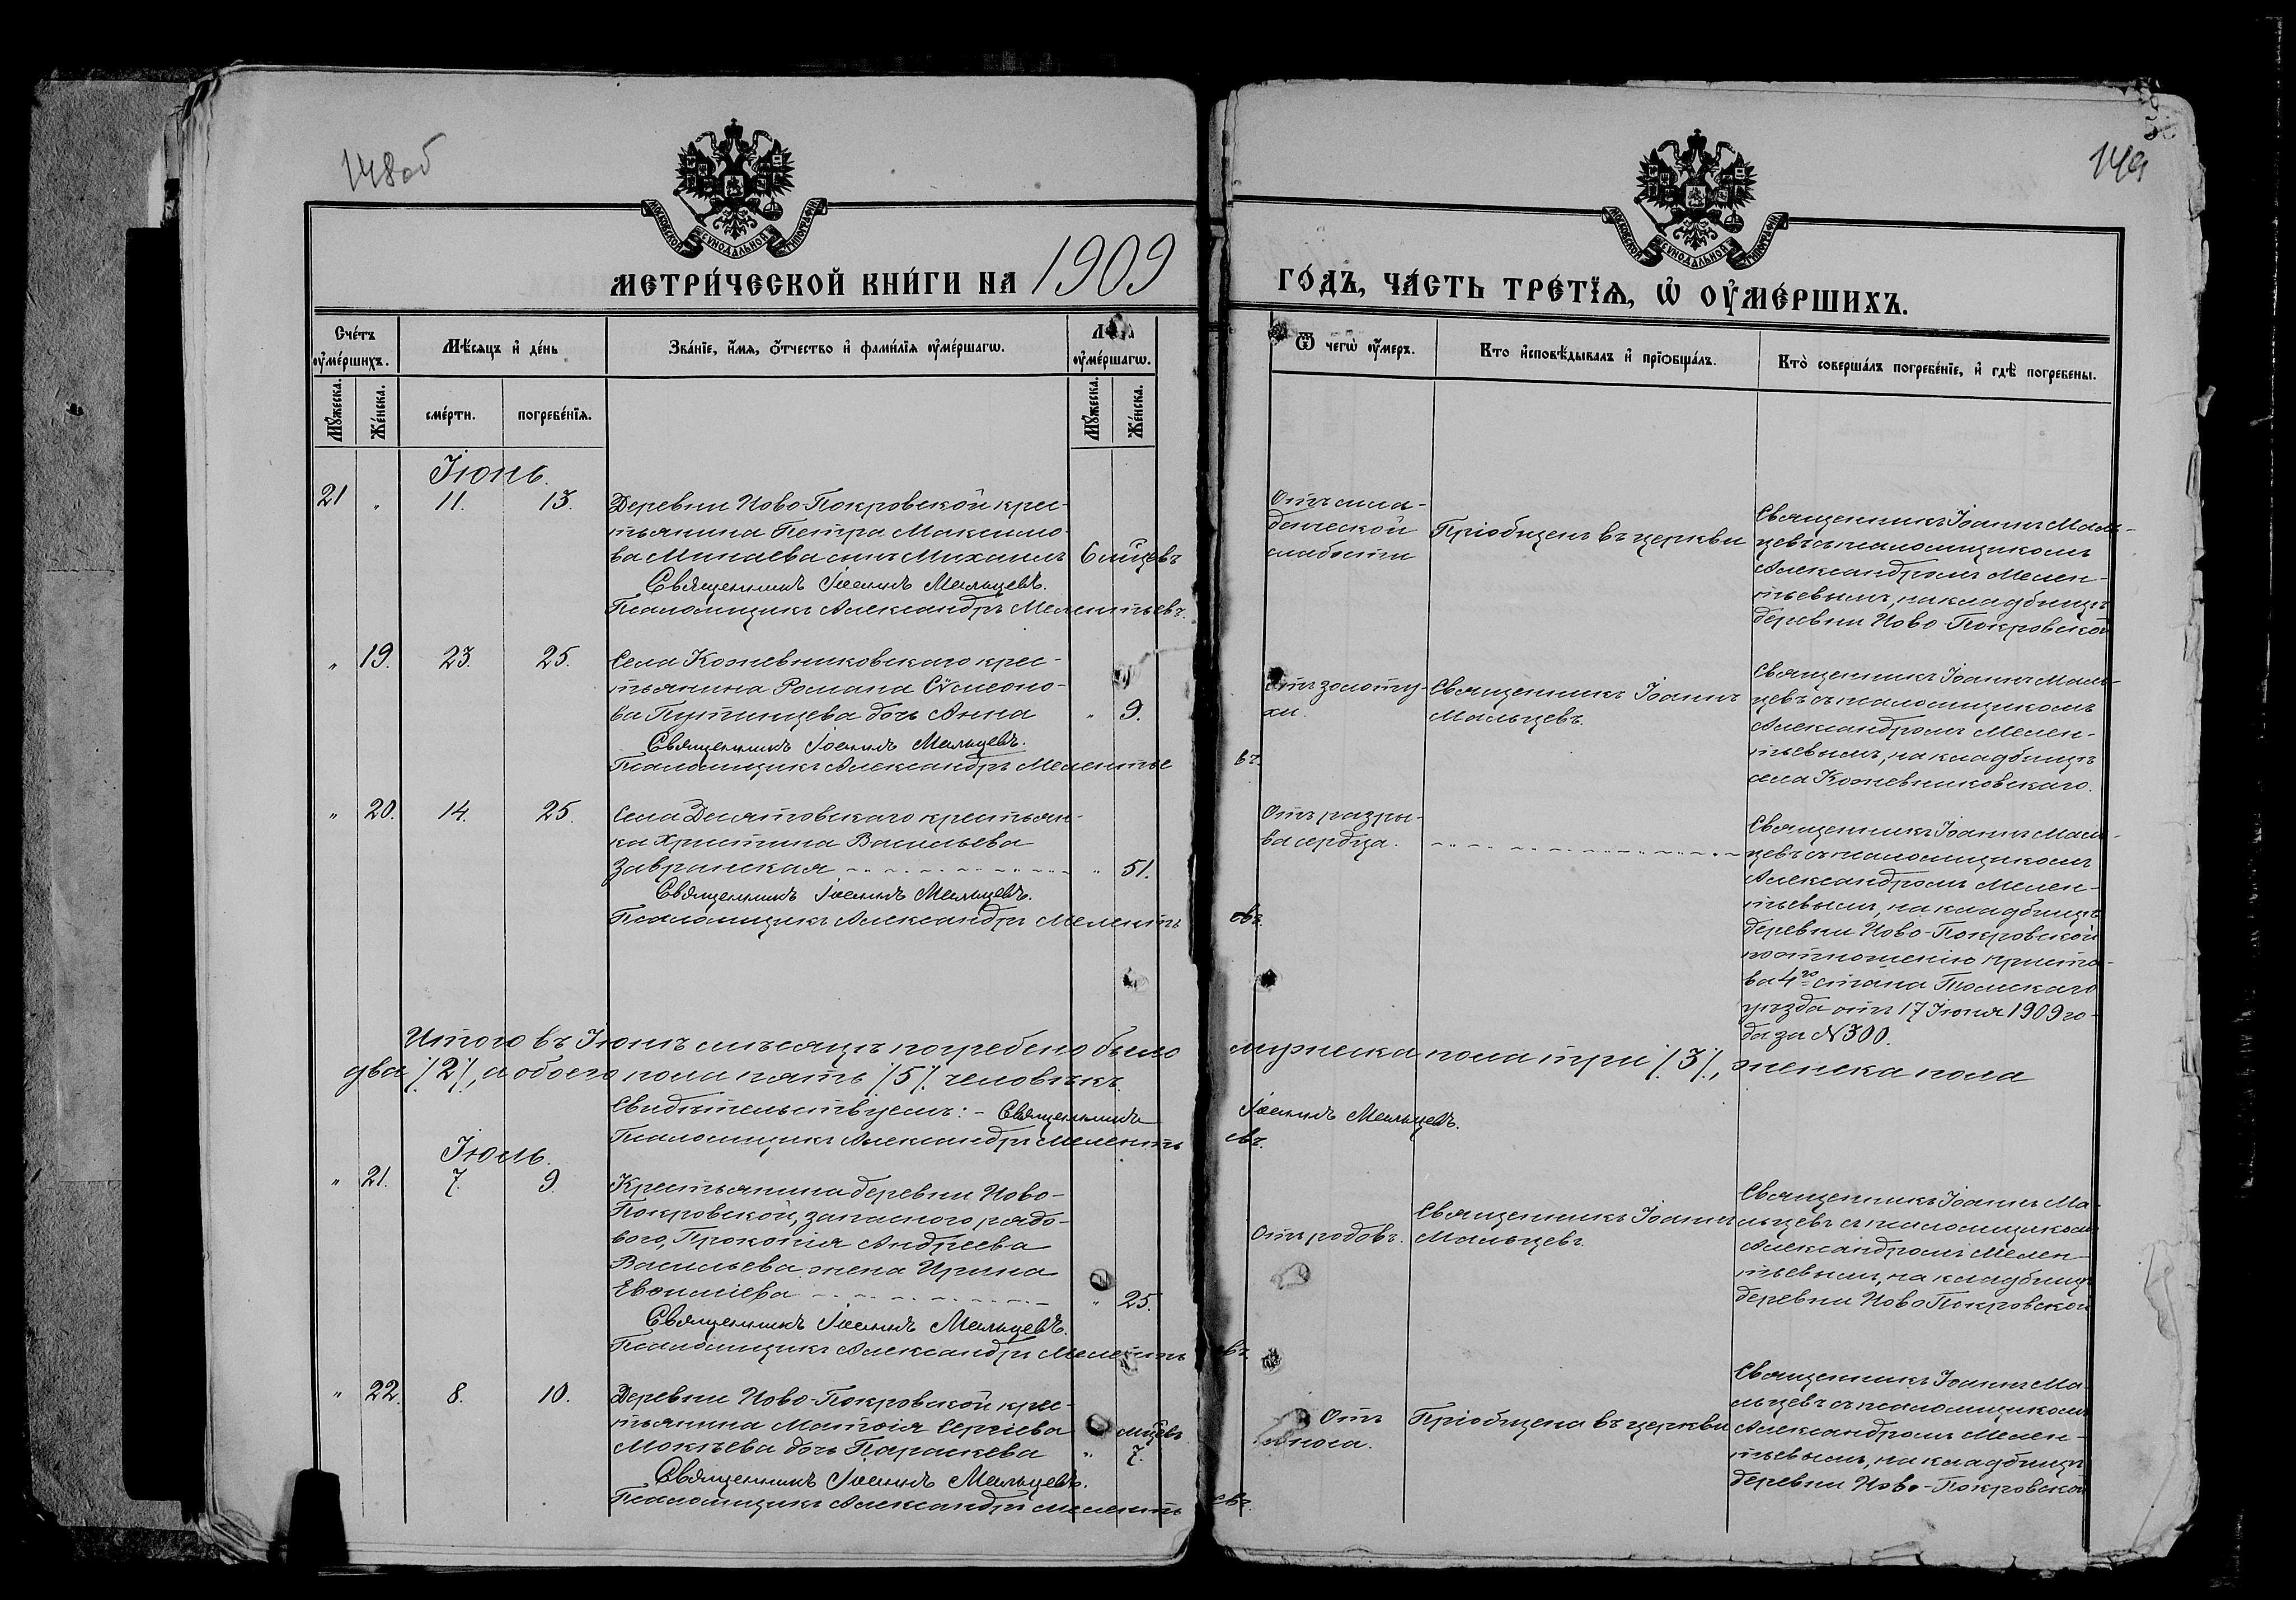 148 об
149
МОСКОВСКОЙ СѴНОДАЛЬНОЙ ТИПОГРАФІИ
МОСКОВСКОЙ СѴНОДАЛЬНОЙ ТИПОГРАФІИ
МЕТРИ́ЧЕСКОЙ КНИ́ГИ НА 1909
ГО́ДЪ, ЧА́СТЬ ТРЕ́ТЇѦ, Ѡ҆ ОУ҆МЕ́РШИХЪ.
Сче́тъ оу҆ме́ршихъ.
Мѣ́сяцъ и҆ де́нь
Зва́нїе, и҆́мѧ, ѻ҆́тчество и҆ фами́лїѧ оу҆ме́ршагѡ.
Лѣ́та оу҆ме́ршагѡ.
Ѿ чегѡ̀ оу҆́меръ.
Кто и҆сповѣ́дывалъ и҆ прїѻбща́лъ.
Кто̀ соверша́лъ погребе́нїе, и҆ гдѣ̀ погребены.
Мꙋ́жеска.
Же́нска.
сме́рти.
погребе́нїѧ.
Мꙋ́жеска.
Же́нска.
Іюнь.
21 " 11. 13.
Деревни Ново Покровской крес-
тьянина Петра Максимо-
ва Минаева сынъ Михаилъ
6 мҍцевъ
Священникъ Іоаннъ Мальцевъ.
Псаломщикъ Александръ Мелентьевъ.
Отъ мла-
денческой
слабости
Пріобщенъ въ церкви
Священникъ Іоаннъ Маль-
цевъ съ псаломщикомъ
Александромъ Мелен-
тьевымъ, на кладбищѣ
деревни Ново-Покровской
" 19. 23. 25.
Села Кожевниковскаго крес-
тьянина Романа Сѵмеоно-
ва Путинцева дочь Анна
" 9.
Священникъ Іоаннъ Мальцевъ.
Псаломщикъ Александръ Мелентье
въ.
Отъ золоту-
хи.
Священникъ Іоаннъ
Мальцевъ.
Священникъ Іоаннъ Маль-
цевъ съ псаломщикомъ
Александромъ Мелен-
тьевымъ, на кладбищѣ
села Кожевниковскаго.
" 20. 14. 25.
Села Десятовскаго крестьян-
ка Христина Васильева
Завранская
" 51.
Священникъ Іоаннъ Мальцевъ.
Псаломщикъ Александръ Меленть
евъ.
Отъ разры-
ва сердца.
Священникъ Іоаннъ Маль-
цевъ съ псаломщикомъ
Александромъ Мелен-
тьевымъ, на кладбищѣ
деревни Ново-Покровской
по отношенію приста-
ва 4го стана Томскаго
уѣзда отъ 17 Іюня 1909 го-
да за № 300.
Итого въ Іюнѣ мѣсяцѣ погребено было мужеска пола три /3/, женска пола
два /2/, а обоего пола пять /5/ человѣкъ.
Свидѣтельствуемъ: - Священникъ Іоаннъ Мальцевъ.
Псаломщикъ Александръ Меленть
евъ.
Іюль.
" 21. 7. 9.
Крестьянина деревни Ново-
Покровской, запасного рядо-
вого, Прокопія Андреева
Васильева жена Ирина
Евфиміева
" 25.
Священникъ Іоаннъ Мальцевъ.
Псаломщикъ Александръ Меленть
евъ
Отъ родовъ.
Священникъ Іоаннъ
Мальцевъ.
Священникъ Іоаннъ Ма-
льцевъ съ псаломщикомъ
Александромъ Мелен-
тьевымъ, на кладбищѣ
деревни Ново Покровской
" 22. 8. 10.
Деревни Ново-Покровской крес-
тьянина Матѳія Сергіева
Мокѣева дочь Параскева
мҍцевъ
" 7.
Священникъ Іоаннъ Мальцевъ.
Псаломщикъ Александръ Меленть
евъ.
Отъ
поноса.
Пріобщена въ церкви
Священникъ Іоаннъ Ма-
льцевъ съ псаломщикомъ
Александромъ Мелен-
тьевымъ, на кладбищѣ
деревни Ново-Покровской